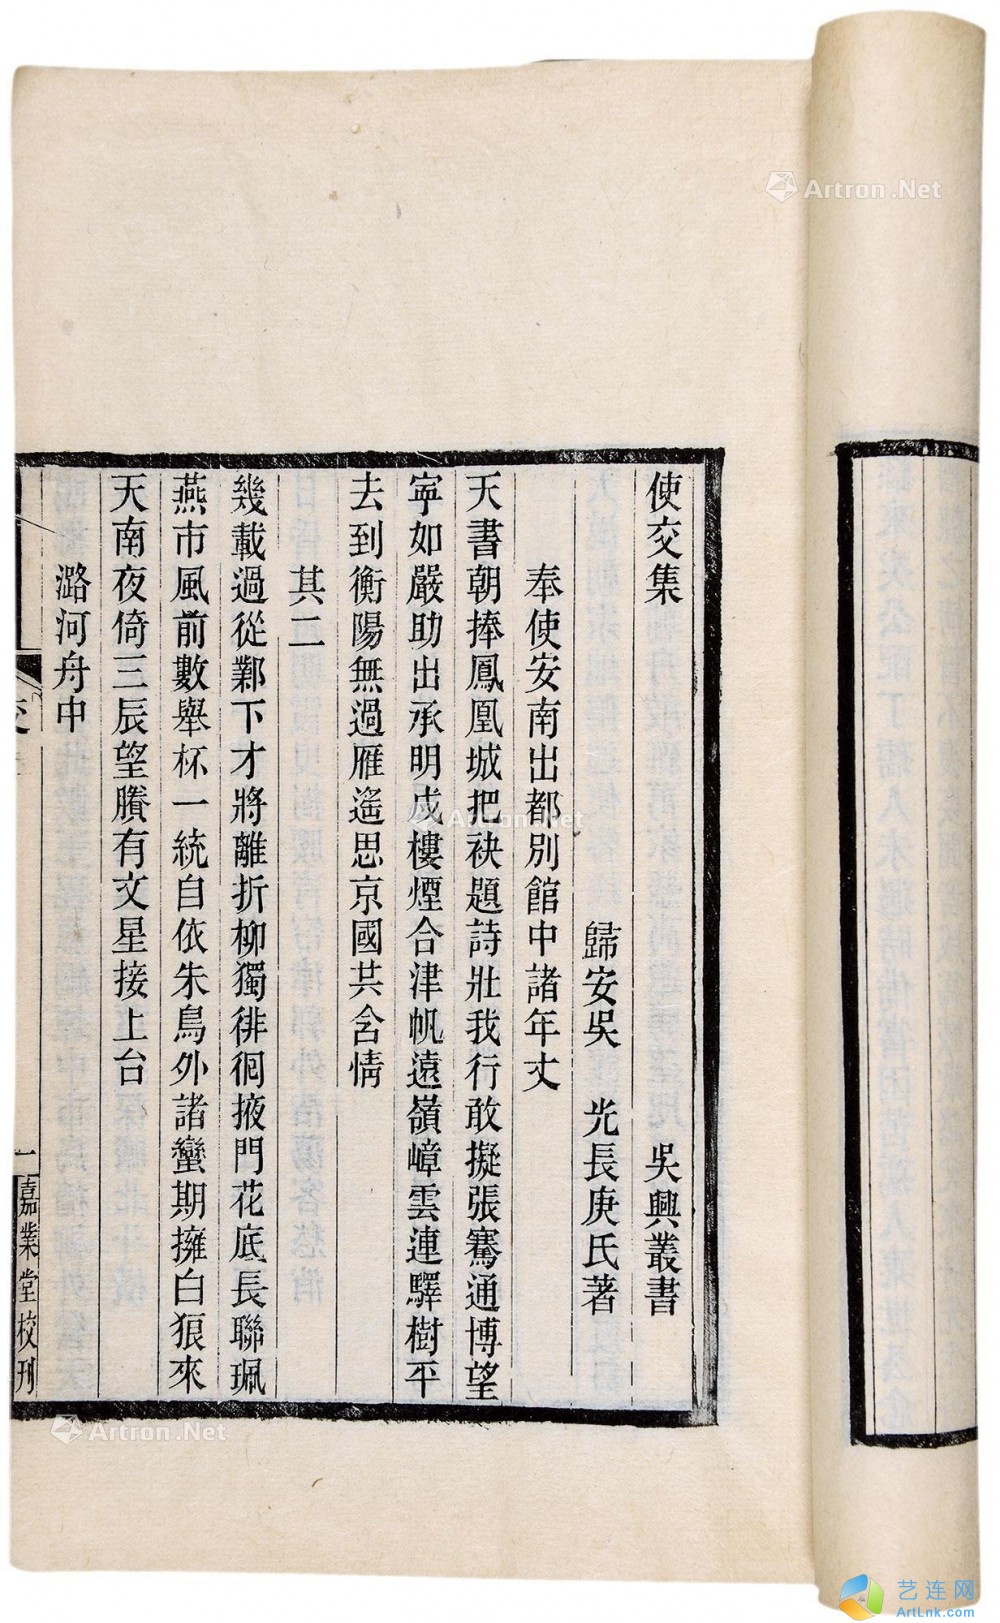 使交集 吳興叢書
歸安吳 光長庚氏著
奉使安南出都別館中諸年丈
天書朝捧鳳凰城把袂題詩壯我行敢擬張騫通博望
寧如嚴助出承明戍樓煙合津帆遠嶺嶂雲連驛樹平
去到衡陽無過雁遙思京國共含情
其二
幾載過從鄴下才將離折柳獨徘徊掖門花底長聯珮
燕市風前數舉杯一統自依朱鳥外諸蠻期擁白狼來
天南夜倚三辰望賸有文星接上台
潞河舟中
交
一
嘉業堂校刊
Artron.Net
Artron.Net
Artron.Net
艺连网
ArtLnk.com